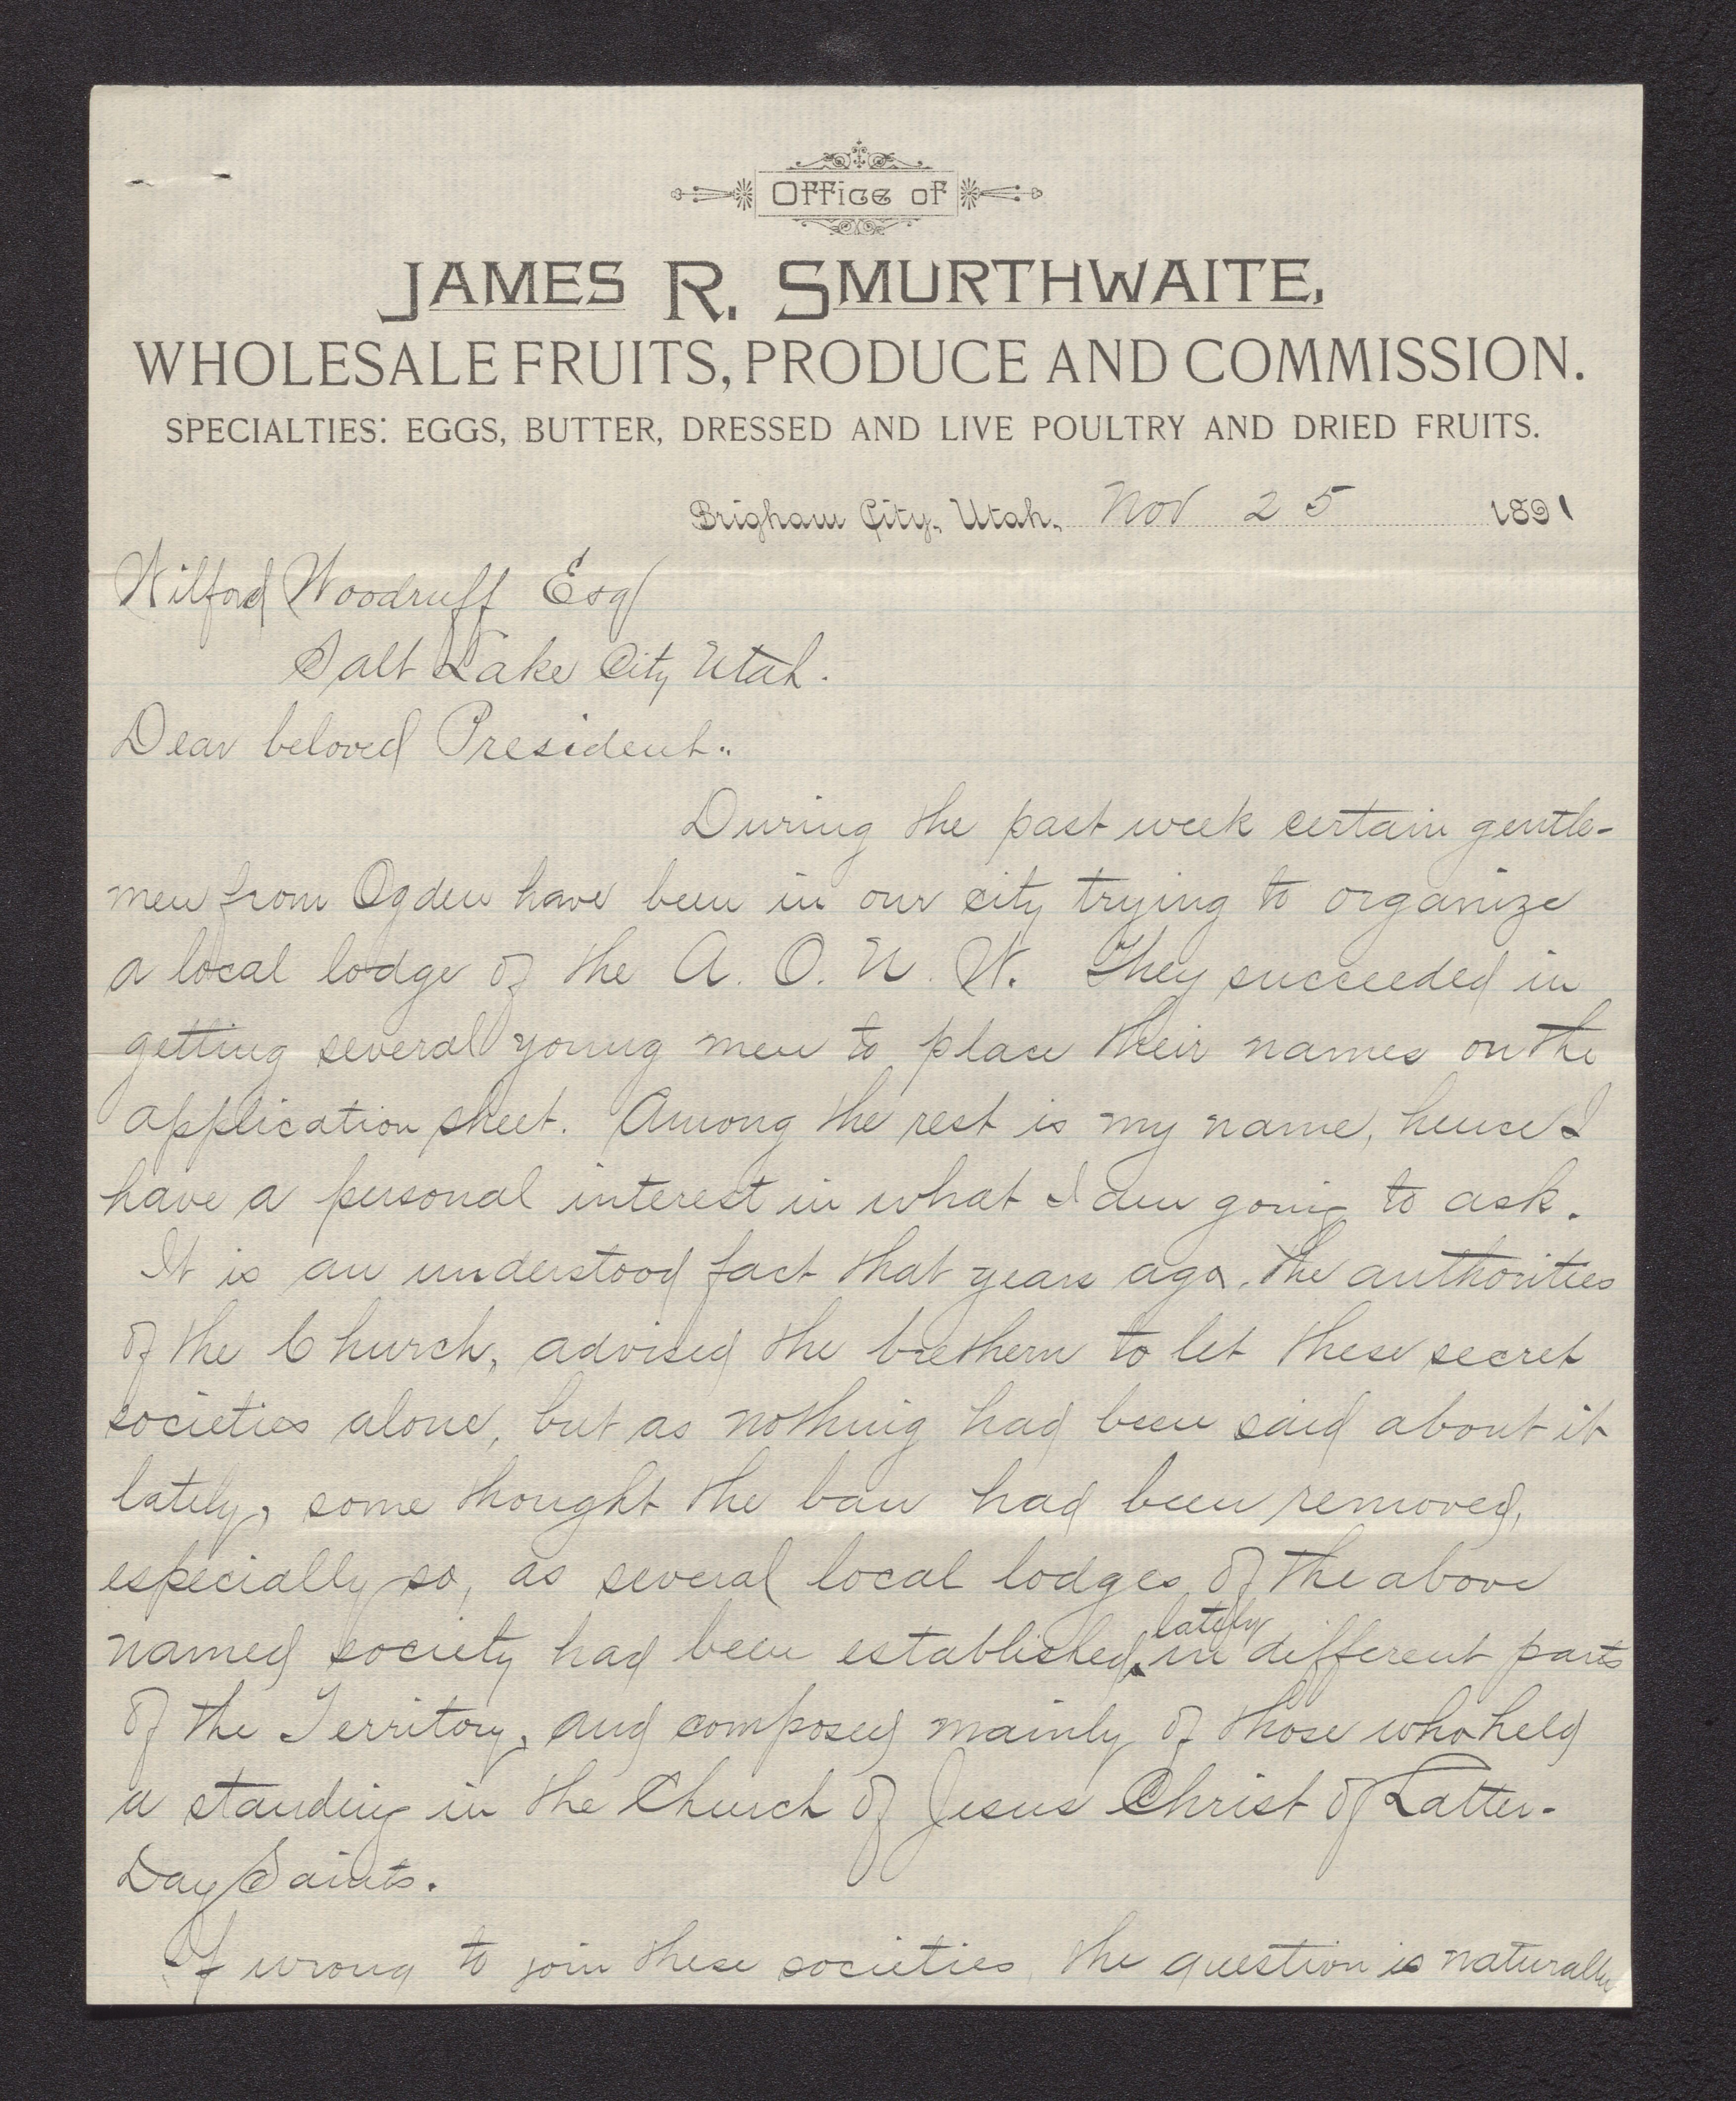 Office of
JAMES R. SMURTHWAITE,
WHOLESALE FRUITS, PRODUCE AND COMMISSION.
SPECIALTIES: EGGS, BUTTER, DRESSED AND LIVE POULTRY AND DRIED FRUITS.
Brigham City, Utah, Nov 25 1891
Wilford Woodruff Esq
Salt Lake City Utah.
Dear beloved President..
During the past week certain gentle-
men from Ogden have been in our city trying to organize
a local lodge of the A. O. U. W. They succeeded in
getting several young men to place their names on the
application sheet. Among the rest is my name, hence I
have a personal interest in what I am going to ask.
It is an understood fact that years ago, the authorities
of the Church, advised the brethern to let these secret
societies alone, but as nothing had been said about it
lately, some thought the ban had been removed,
especially so, as several local lodges of the above
lately
named society had been established in different parts
of the Territory, and composed mainly of those who held
a standing in the Church of Jesus Christ of Latter-
Day Saints.
If wrong to join these societies, the question is naturally